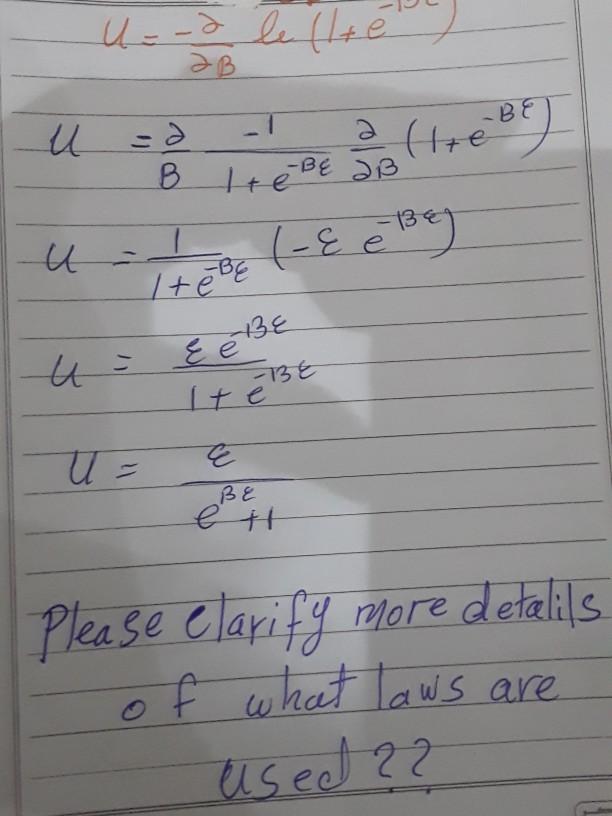 U = -∂/∂β ln (1+e^-βε)
U = ∂/β -1/1+e^-βε ∂/∂β (1+e^-βε)
U = 1/1+e^-βε (-ε e^-βε)
U = ε e^-βε/1+e^-βε
U = ε/e^βε+1
Please clarify more detalils
of what laws are
used ??